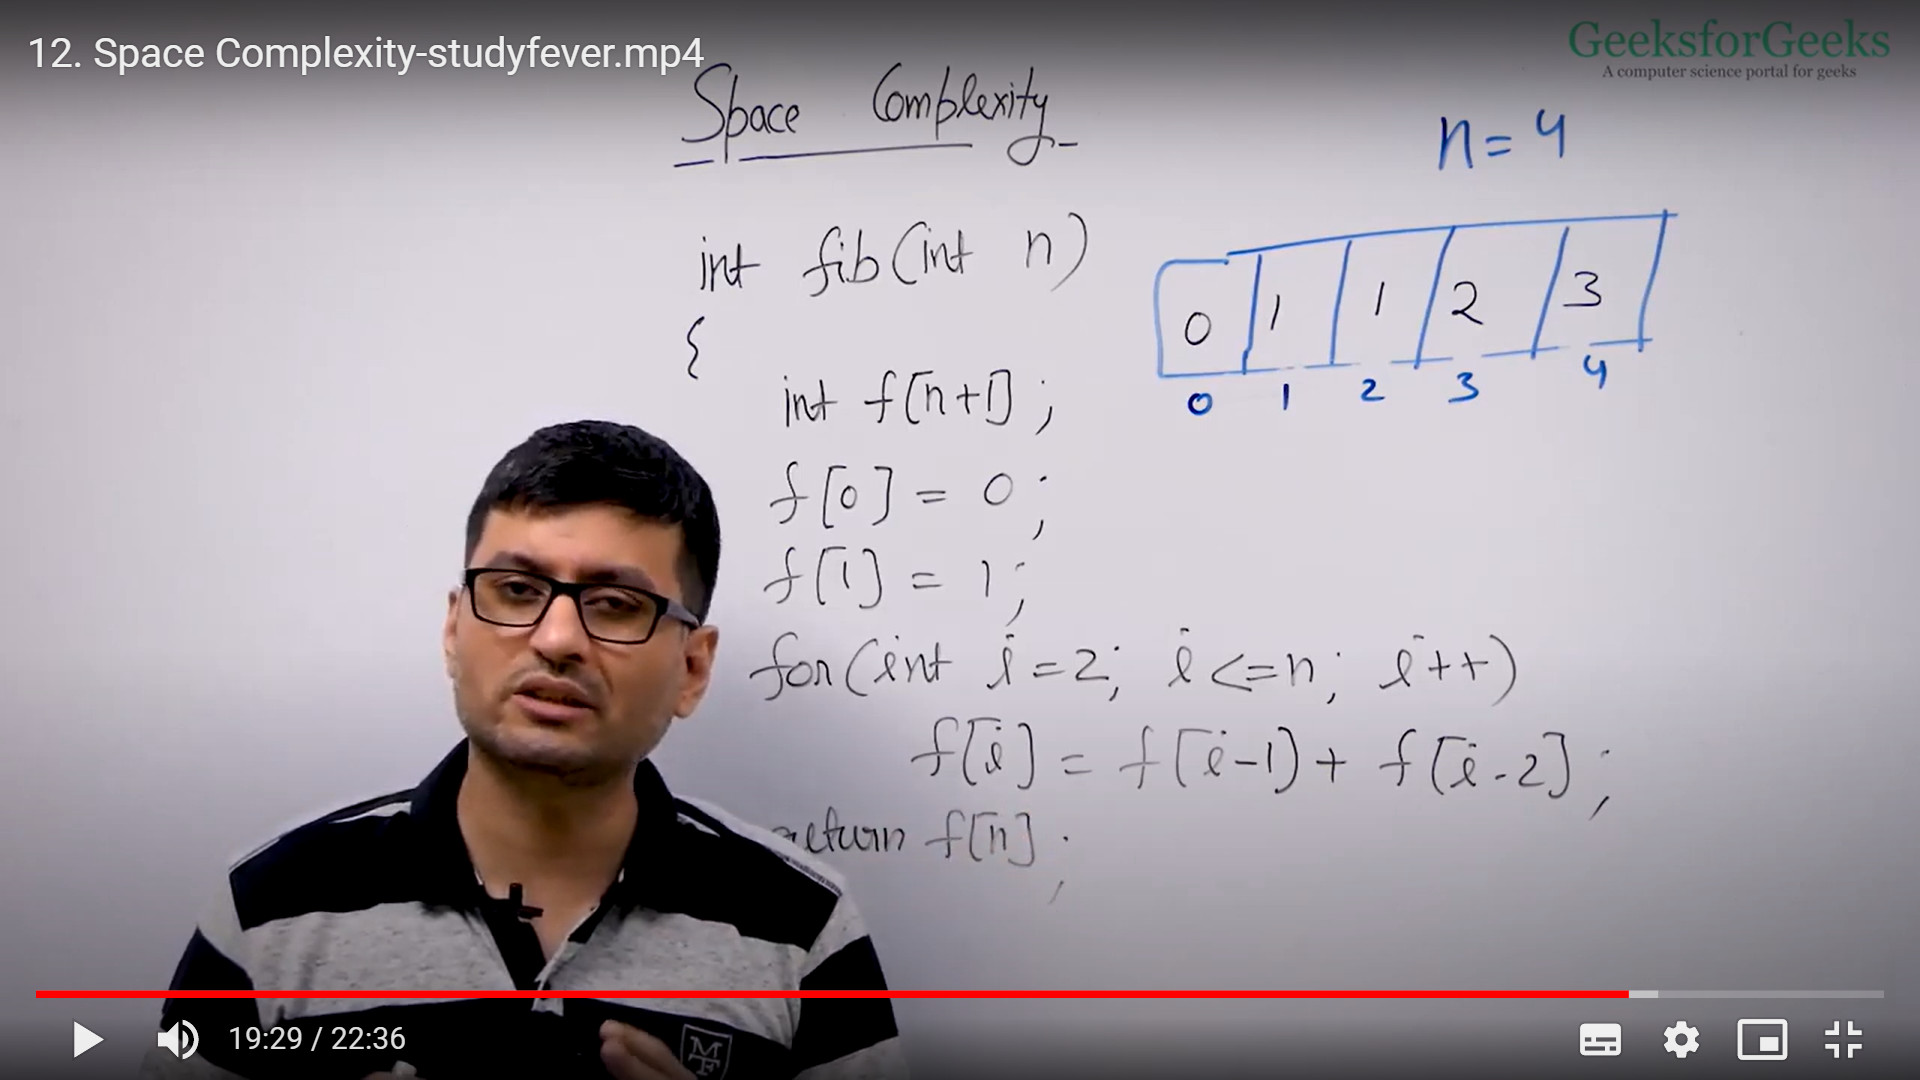 12. Space Complexity-studyfever.mp4
GeeksforGeeks
A computer science portal for geeks
Space Complexity
n=4
int fib(int n)
{
0 1 1 2 3
0 1 2 3 4
int f[n+1];
f[0] = 0;
f[1] = 1;
for(int i=2; i<=n; i++)
f[i] = f[i-1)+ f[i-2];
return f[n];
MF
19:29 / 22:36